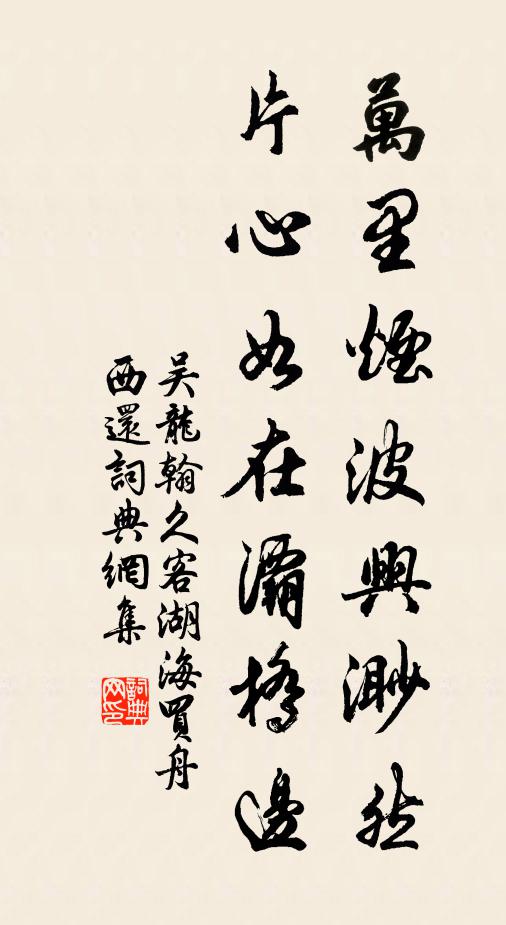 萬里煙波興渺然
片心如在灞橋邊
吴龍翰久客湖海買舟
西還詞典網集
詞典网印